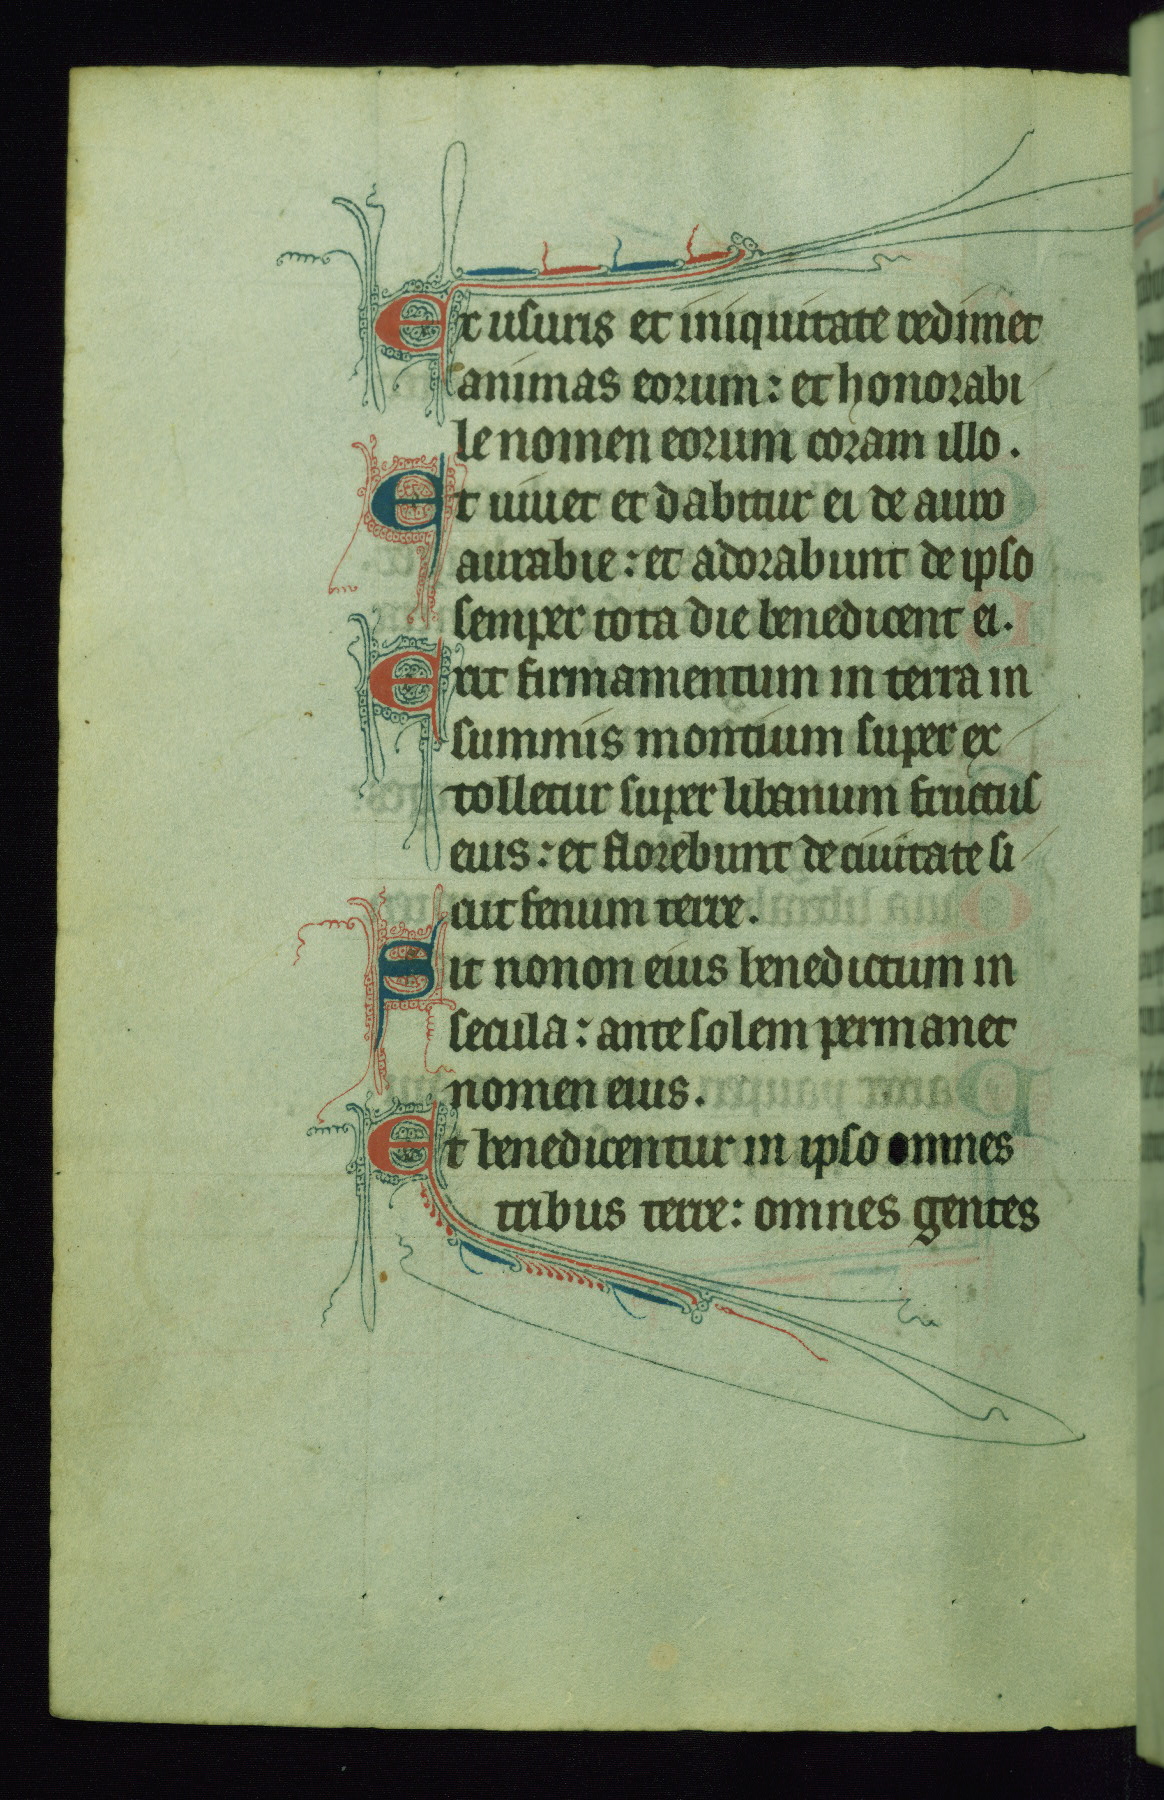 Et usuris et iniquitate redimet
animas eorum: et honorabi
le nomen eorum coram illo.
Et uiuet et dabitur ei de auro
aurabie: et adorabunt de ipso
semper tota die benedicent ei.
Erit firmamentum in terra in
summis montium super ex
tolletur super libanum fructus
eius: et florebunt de ciuitate si
cut fenum terre.
Sit nonon eius benedictum in
secula: ante solem permanet
nomen eius.
Et benedicentur in ipso omnes
tribus terre: omnes gentes